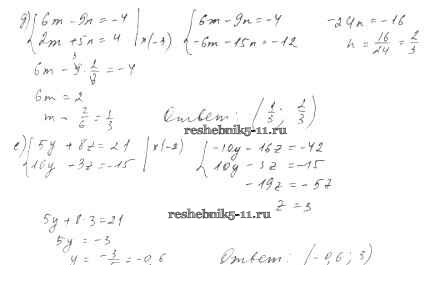 д) { 6m - 9n = -4 | { 6m - 9n = -4
2m + 5n = 4 | ×(-3) -6m - 15n = -12
-24n = -16
n = 16/24 = 2/3
6m - 9 · 2/3 = -4
6m = 2
m = 2/6 = 1/3
Ответ: (1/3; 2/3)
reshebnik5-11.ru
е) { 5y + 8z = 21 | ×(-2) { -10y - 16z = -42
10y - 3z = -15 10y - 3z = -15
-19z = -57
z = 3
reshebnik5-11.ru
5y + 8·3 = 21
5y = -3
y = -3/5 = -0,6
Ответ: (-0,6; 3)